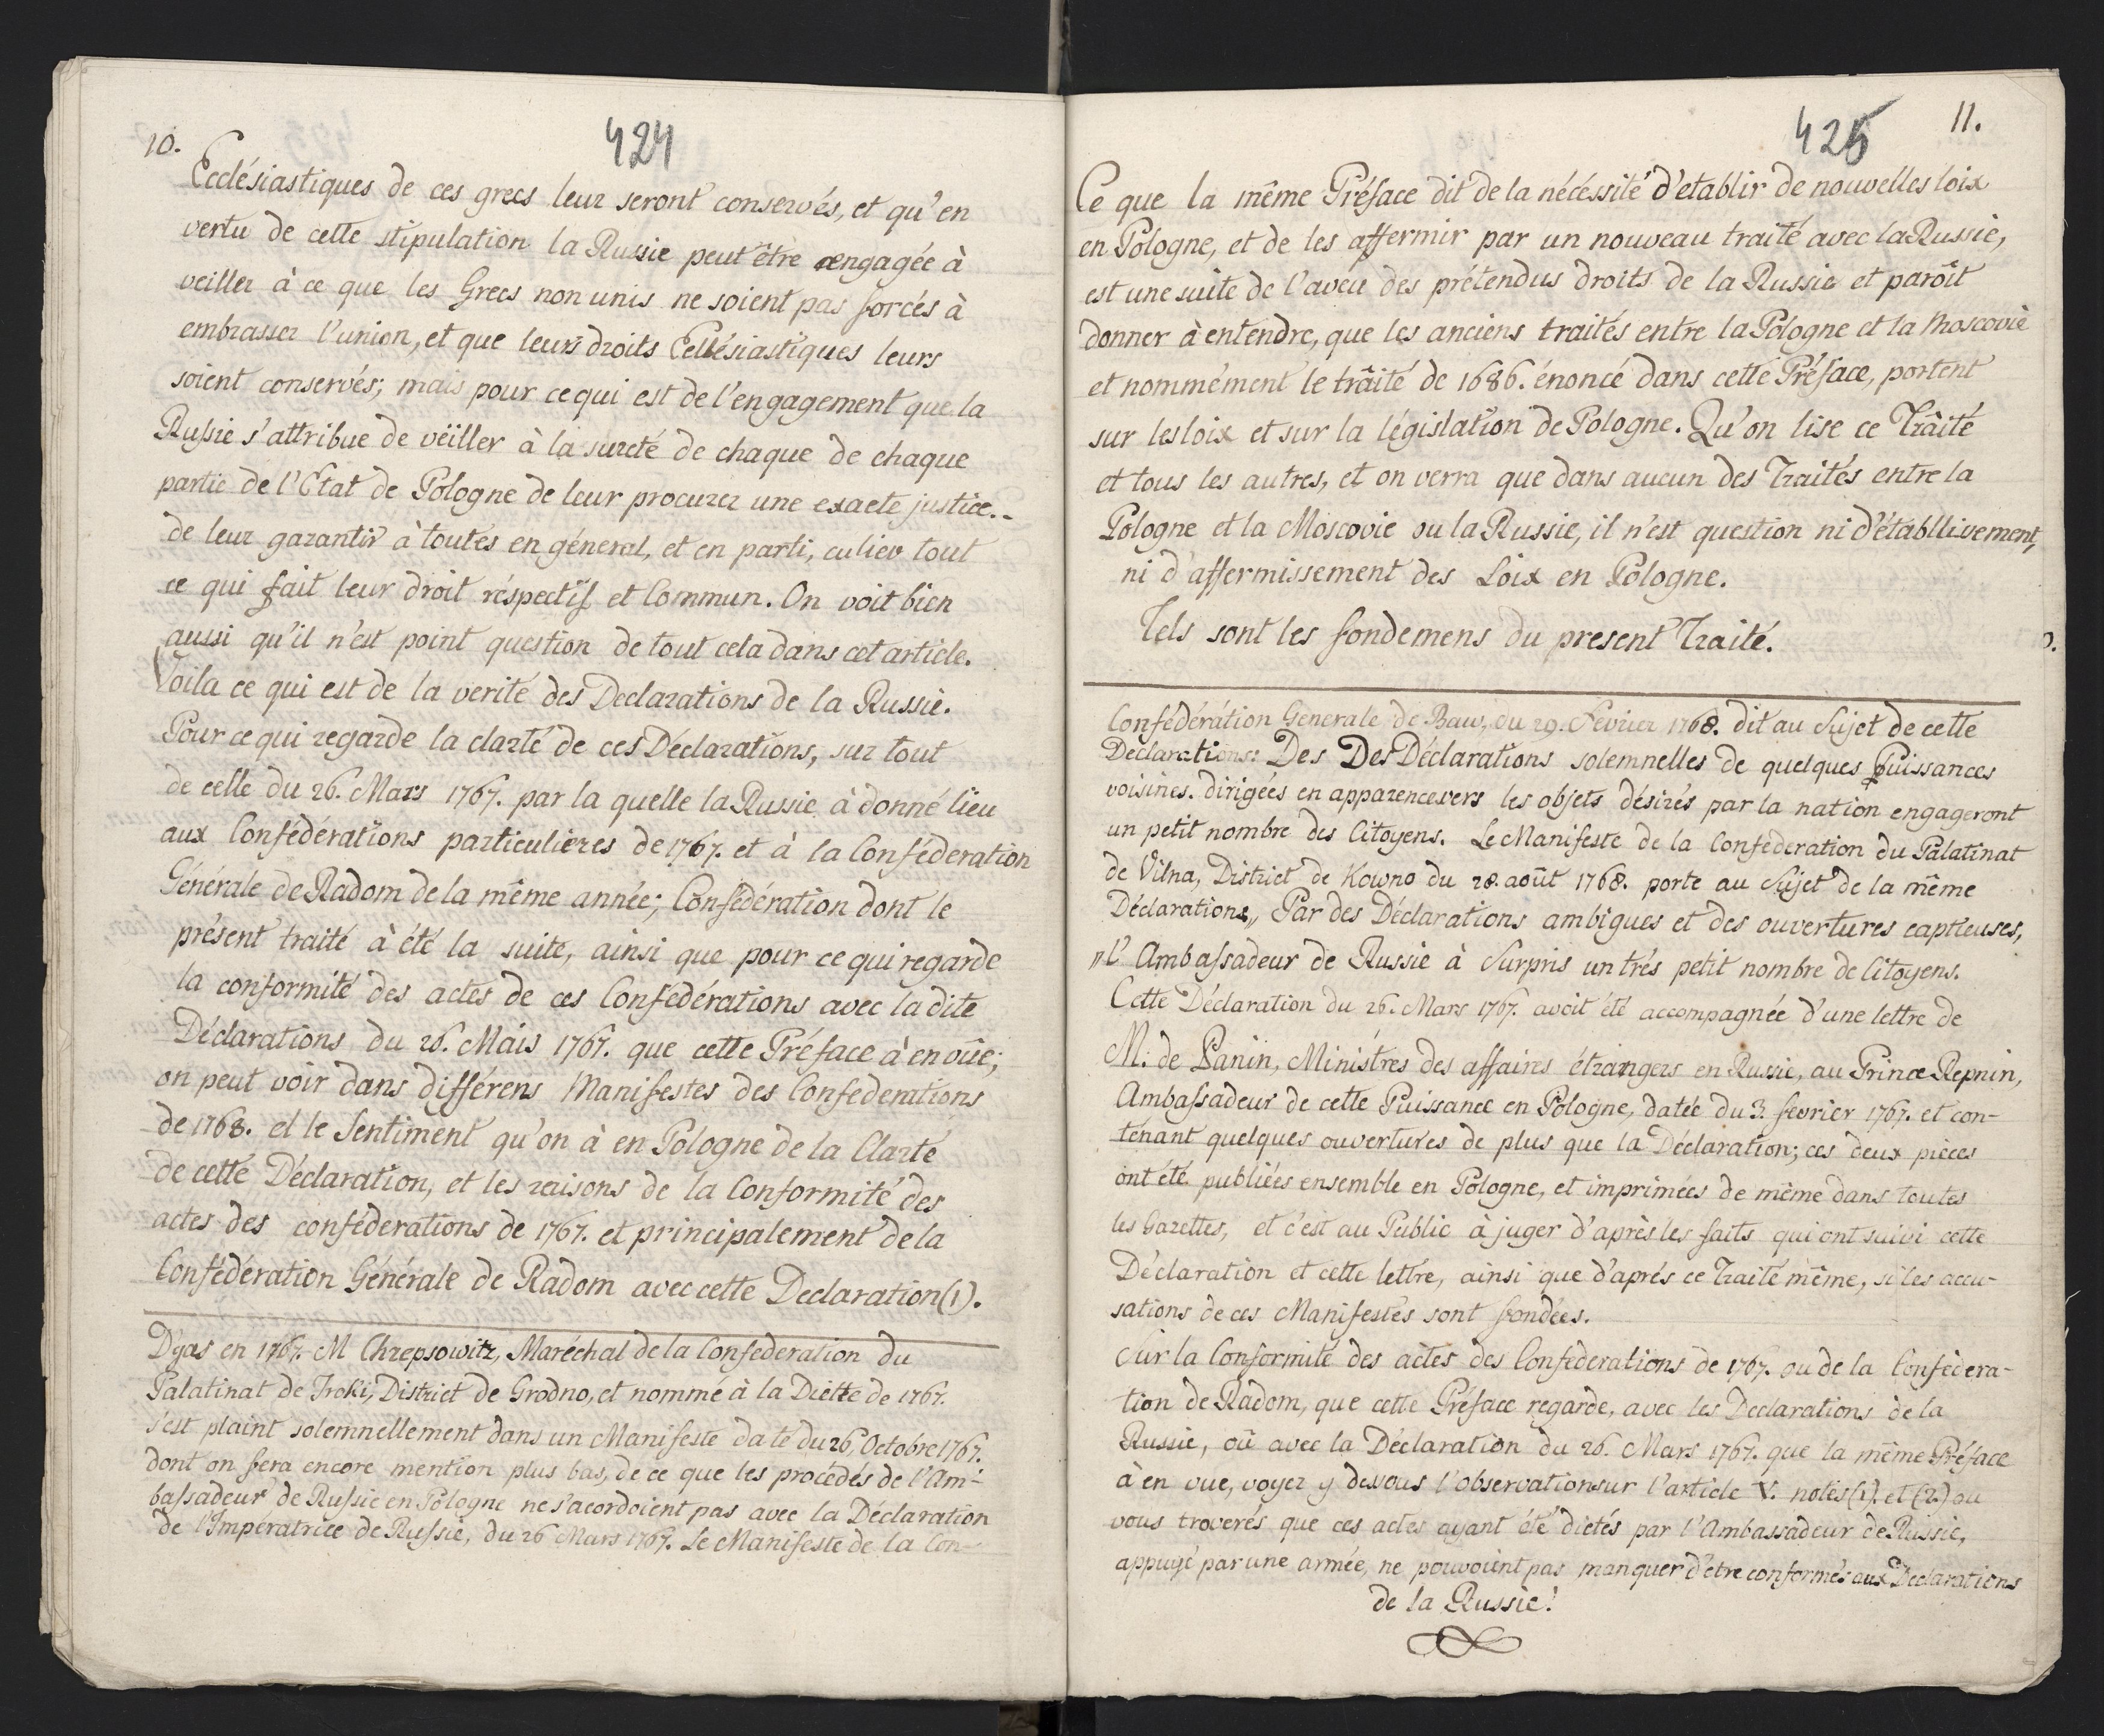 10.
424
Ecclésiastiques de ces grecs leur seront conservés, et qu'en
vertu de cette stipulation la Russie peut être engagée à
veiller à ce que les Grecs non unis ne soient pas forcés à
embrasser l'union, et que leurs droits Ecclésiastiques leurs
soient conservés; mais pour ce qui est de l'engagement que la
Russie s'attribue de vëiller à la sureté de chaque de chaque
partie de l'Etat de Pologne de leur procurer une exacte justice..
de leur garantir à toutes en géneral, et en parti, culier tout
ce qui fait leur droit réspectif et Commun. On voit bien
aussi qu'il n'est point question de tout cela dans cet article.
Voila ce qui est de la verité des Declarations de la Russie.
Pour ce qui regarde la clarté de ces Déclarations, sur tout
de celle du 26. Mars 1767. par la quelle la Russie à donné lieu
aux Confédérations particulieres de 1767. et à la Conféderation
Générale de Radom de la même année; Confédération dont le
présent traité à été la suite, ainsi que pour ce qui regarde
la conformité des actes de ces Confédérations avec la dite
Déclarations du 26. Mais 1767. que cette Préface à en oûe;
on peut voir dans différens Manifestes des Confederations
de 1768. et le Sentiment qu'on à en Pologne de la Clarté
de cette Déclaration, et les raisons de la Conformité des
actes des conféderations de 1767. et principalement de la
Confédération Générale de Radom avec cette Declaration (1).
Dyas en 1767. M Chrepsowitz, Maréchal de la Confederation du
Palatinat de Troki, District de Grodno, et nommé à la Diette de 1767.
s'est plaint solemnellement dans un Manifeste daté du 26, Octobre 1767.
dont on fera encore mention plus bas, de ce que les procédés de l'Am-
bassadeur de Russie en Pologne ne s'acordoient pas avec la Déclaration
de l'Impératrice de Russie, du 26 Mars 1767. Le Manifeste de la Con-
425
11.
Ce que la même Préface dit de la nécéssité d'etablir de nouvelles loix
en Pologne, et de les affermir par un nouveau traité avec la Russie,
est une suite de l'aveu des prétendus droits de la Russie et paroît
donner à entendre, que les anciens traités entre la Pologne et la Moscovie
et nommément le trâité de 1686. énoncé dans cette Préface, portent
sur les loix et sur la législation de Pologne. Qu'on lise ce Trâité
et tous les autres, et on verra que dans aucun des Traités entre la
Pologne et la Moscovie ou la Russie, il n'est question ni d'établlisvement,
ni d'affermissement des Loix en Pologne.
Tels sont les fondemens du present Traité.
Confédération Generale de Baw, du 29. Fevrier 1768. dit au Sujet de cette
Declarations: Des Des Déclarations solemnelles de quelques Puissances
voisines. dirigées en apparence vers les objets désirés par la nation engageront
un petit nombre des Citoyens. Le Manifeste de la Confederation du Palatinat
de Vilna, District de Kowno du 28. août 1768. porte au Sujet de la même
Déclarations,, Par des Déclarations ambigues et des ouvertures captieuses,
,,l'Ambassadeur de Russie à Surpris un trés petit nombre de Citoyens.
Cette Déclaration du 26. Mars 1767. avoit été accompagnée d'une lettre de
M: de Panin, Ministres des affaires étrangers en Russie, au Prince Repnin,
Ambassadeur de cette Puissance en Pologne, datée du 3. fevrier 1767. et con-
tenant quelques ouvertures de plus que la Déclaration; ces deux pièces
ont été publiées ensemble en Pologne, et imprimées de même dans toutes
les Gazettes, et c'est au Public à juger d'après les faits qui ont suivi cette
Déclaration et cette lettre, ainsi que d'aprés ce Traité même, si les accu-
sations de ces Manifestes sont fondées.
Sur la Conformité des actes des Confederations de 1767. ou de la Confédera-
tion de Radom, que cette Préface regarde, avec les Declarations de la
Russie, oû avec la Déclaration du 26. Mars 1767. que la même Préface
à en vue, voyez y dessous l'observation sur l'article V. notes (1). et (2.) ou
vous troverés que ces actes ayant été dictés par l'Ambassadeur de Russie,
appuyé par une armée, ne pouvoient pas manquer d'etre conformés aux Declarations
de la Russie!